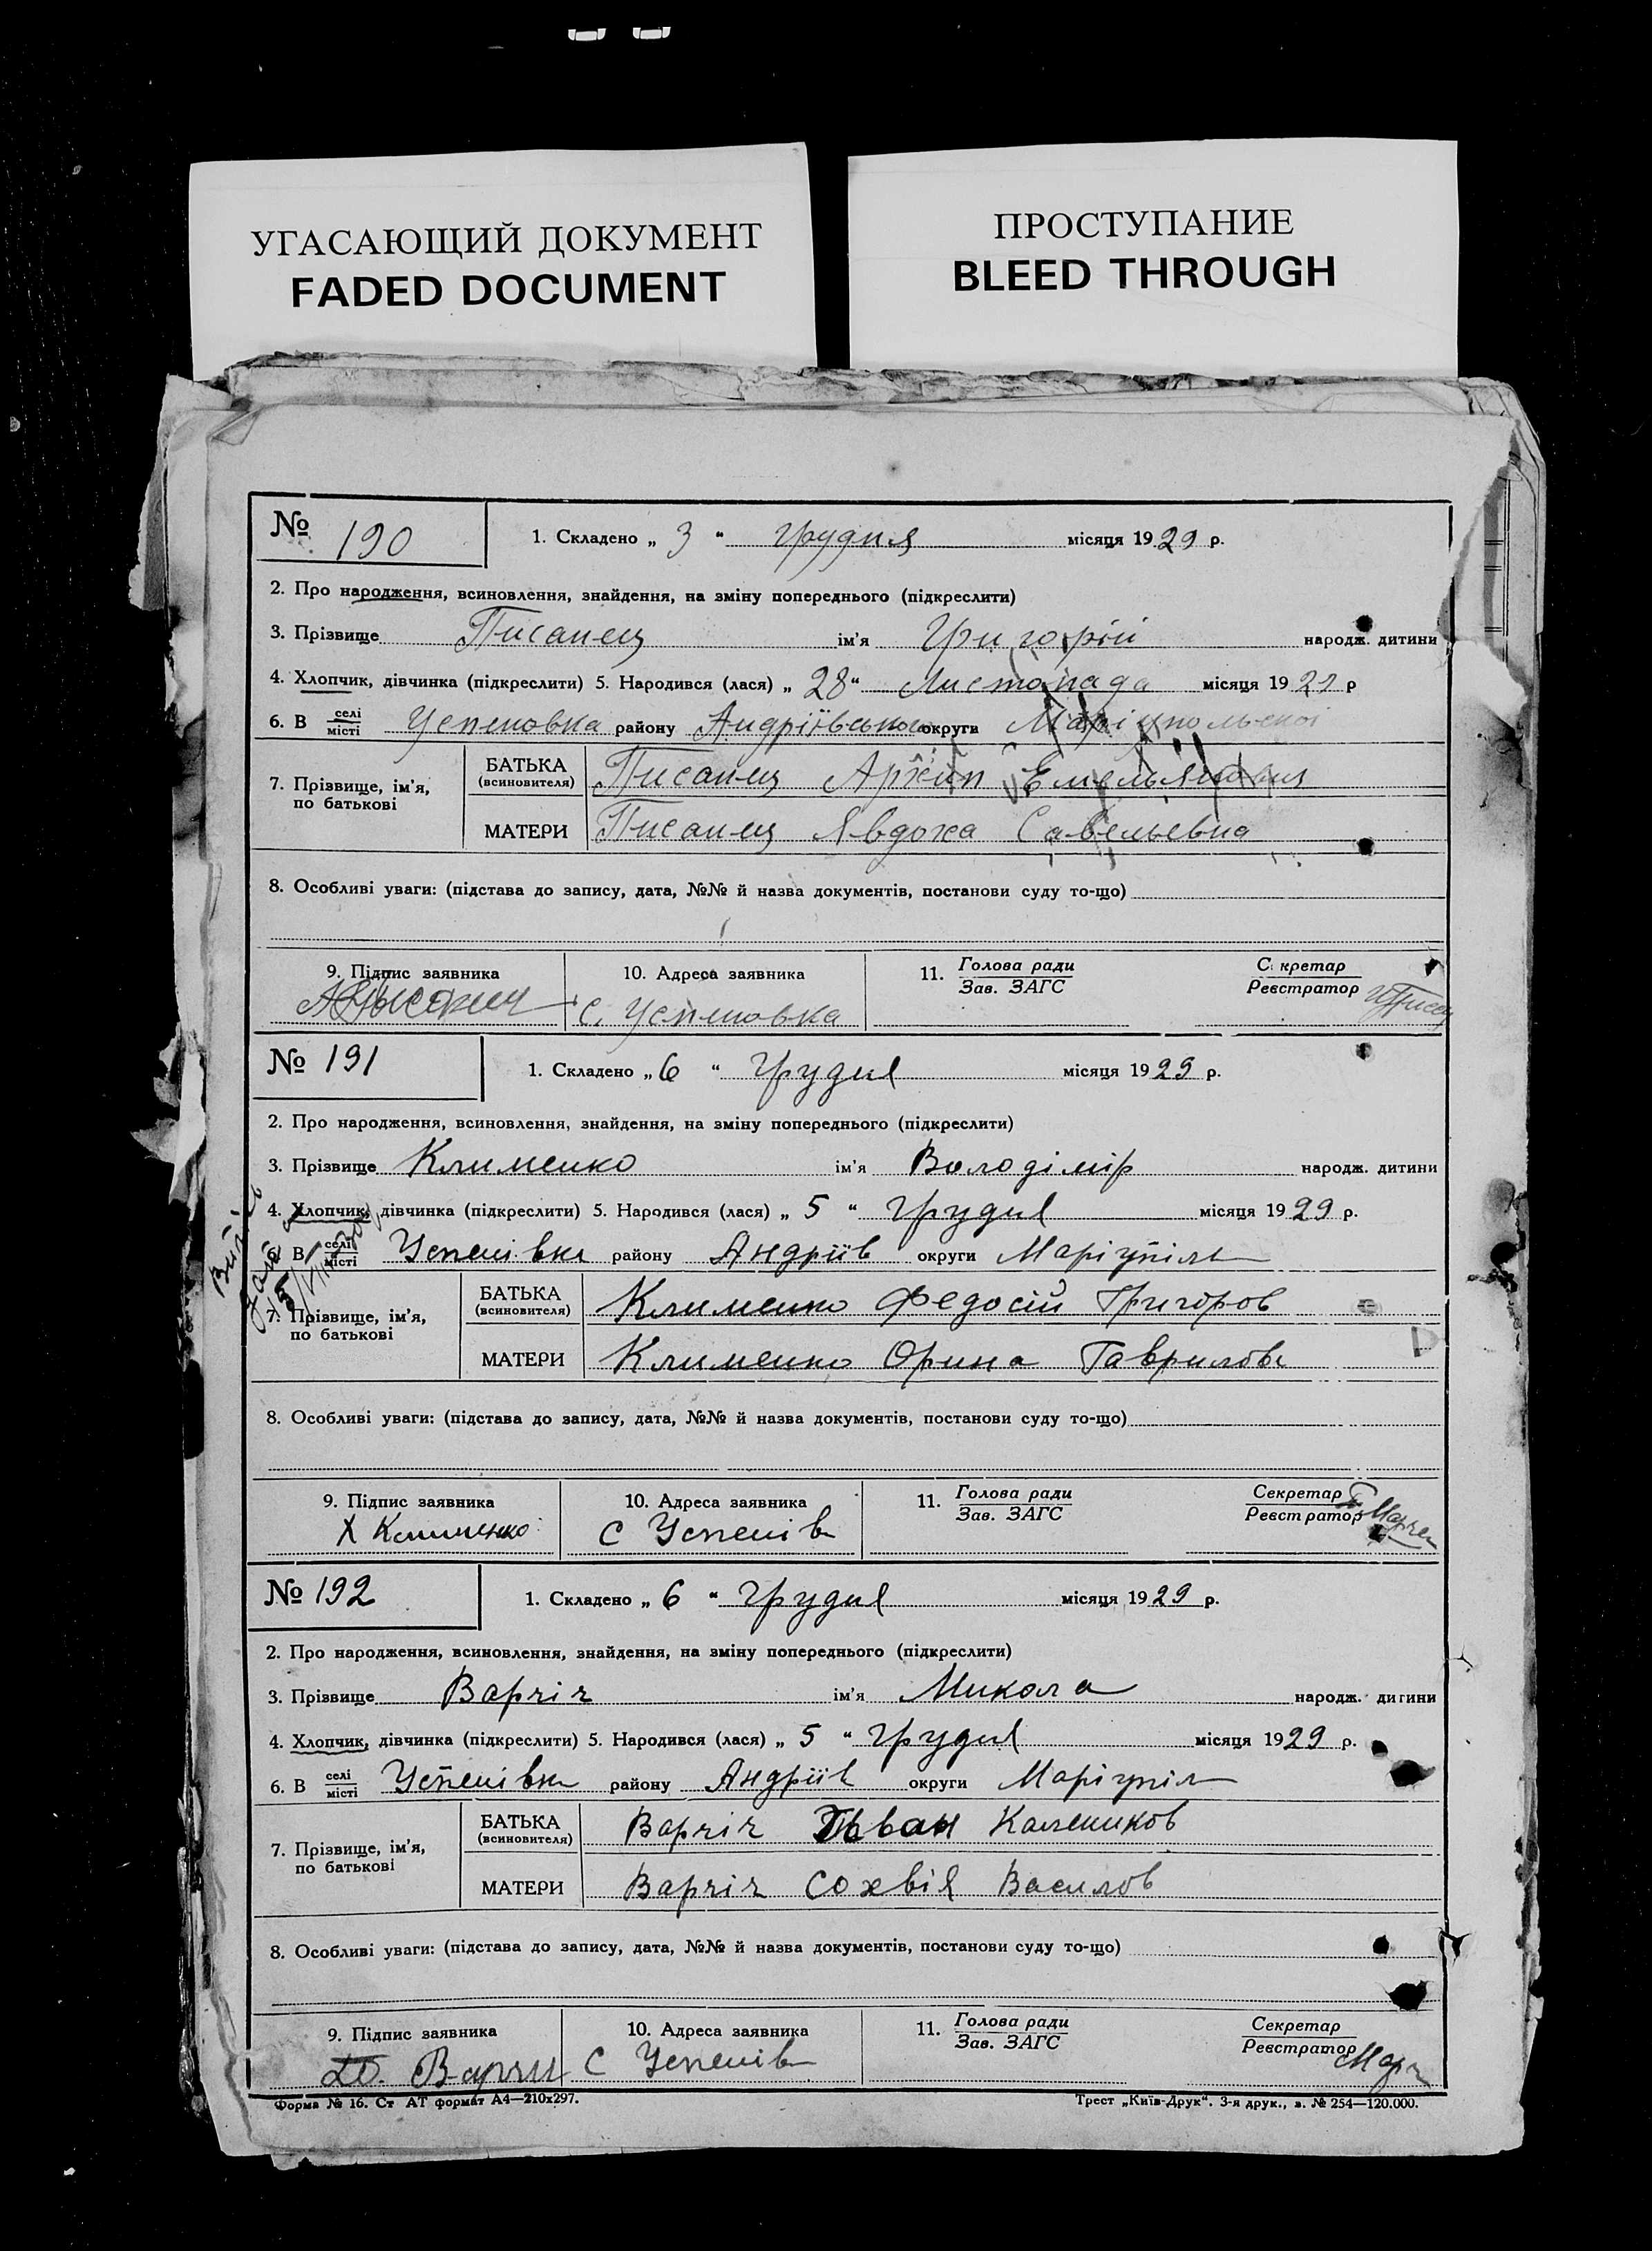 УГАСАЮЩИЙ ДОКУМЕНТ
FADED DOCUMENT
ПРОСТУПАНИЕ
BLEED THROUGH
№ 190 1. Складено „ 3 “ грудня місяця 1929 р.
2. Про народження, всиновлення, знайдення, на зміну попереднього (підкреслити)
3. Прізвище Писанец ім'я Григорій народж. дитини
4. Хлопчик, дівчинка (підкреслити) 5. Народився (лася) „ 28 “ Листопада місяця 1929 р
6. В селі/місті Успеновка району Андріївського округи Маріупольскої
7. Прізвище, ім'я, по батькові
БАТЬКА (всиновителя) Писанец Архип Емельянович
МАТЕРИ Писанец Явдоха Савельевна
8. Особливі уваги: (підстава до запису, дата, №№ й назва документів, постанови суду то-що)
9. Підпис заявника 10. Адреса заявника 11. Голова ради/Зав. ЗАГС Секретар/Реєстратор
С. Успеновка
№ 191 1. Складено „ 6 “ Грудня місяця 1929 р.
2. Про народження, всиновлення, знайдення, на зміну попереднього (підкреслити)
3. Прізвище Клименко ім'я Володімір народж. дитини
4. Хлопчик, дівчинка (підкреслити) 5. Народився (лася) „ 5 “ Грудня місяця 1929 р.
6. В селі/місті Успенівка району Андріїв округи Маріупіль
7. Прізвище, ім'я, по батькові
БАТЬКА (всиновителя) Клименко Федосій Григоров
МАТЕРИ Клименко Орина Гаврилов
8. Особливі уваги: (підстава до запису, дата, №№ й назва документів, постанови суду то-що)
9. Підпис заявника 10. Адреса заявника 11. Голова ради/Зав. ЗАГС Секретар/Реєстратор
Х Клименко с Успенів
№ 192 1. Складено „ 6 “ Грудня місяця 1929 р.
2. Про народження, всиновлення, знайдення, на зміну попереднього (підкреслити)
3. Прізвище Варчіч ім'я Микола народж. дитини
4. Хлопчик, дівчинка (підкреслити) 5. Народився (лася) „ 5 “ Грудня місяця 1929 р.
6. В селі/місті Успенівка району Андріїв округи Маріупіль
7. Прізвище, ім'я, по батькові
БАТЬКА (всиновителя) Варчіч Іван Калеников
МАТЕРИ Варчіч Сохвія Василов
8. Особливі уваги: (підстава до запису, дата, №№ й назва документів, постанови суду то-що)
9. Підпис заявника 10. Адреса заявника 11. Голова ради/Зав. ЗАГС Секретар/Реєстратор
с Успенів
Форма № 16. Ст АТ формат А4—210х297. Трест „Київ-Друк“. 3-я друк., з. № 254—120.000.